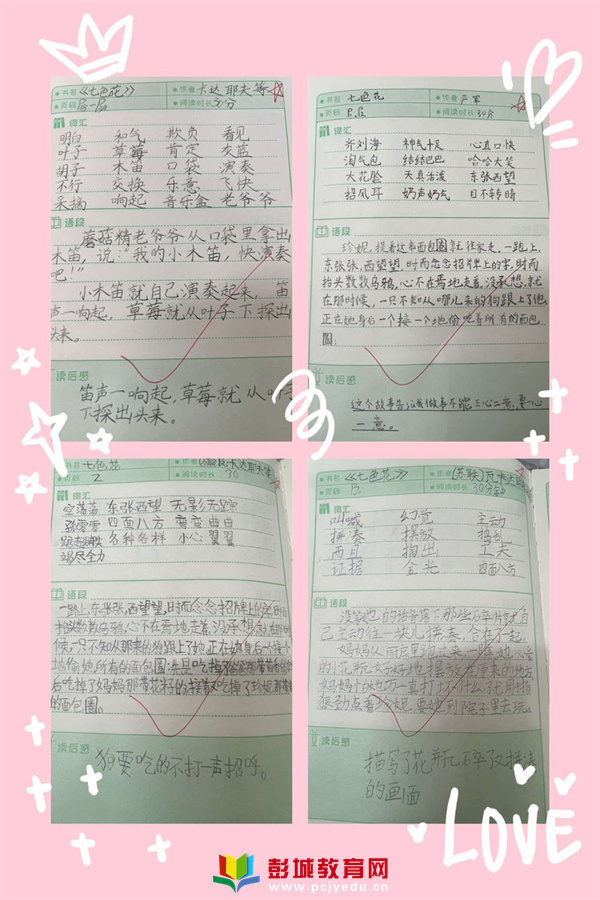 书名《七色花》 作者 卡达耶夫等
页码 阅读时长 30分
词汇
明白 和气 欺负 看见
叶子 草莓 肯定 灰蓝
胡子 木笛 口袋 演奏
不行 交换 乐意 飞快
采摘 响起 音乐盒 老爷爷
语段
蘑菇精老爷爷从口袋里拿出
木笛，说：“我的小木笛，快演奏
吧！”
小木笛就自己演奏起来，笛
声一响起，草莓就从叶子下探出
头来。
读后感
笛声一响起，草莓就从叶子
下探出头来。
书名 七色花 作者
页码 阅读时长 30分
词汇
齐刘海 神气十足 心直口快
淘气包 结结巴巴 哈哈大笑
大花脸 天真活泼 东张西望
招风耳 奶声奶气 目不转睛
语段
珍妮，提着这串面包圈就往家走，一路上，
东张张，西望望，时而念念招牌上的字，时而
抬头数数乌鸦，心不在焉地走着，没承想，就
在那时候，一只不知从哪儿来的狗跟上了他，
正在她身后一个接一个地偷吃着所有的面包
圈；
读后感
这个故事告诉我做事不能三心二意，要一心
一意。
书名 七色花 作者
页码 2 阅读时长 30
词汇
空荡荡 东张西望 无影无踪
孤零零 四面八方 弯弯曲曲
各种各样 小心翼翼
竭尽全力
语段
一路上，东张张，西望望，时而念念招牌上的字，时而
抬头数数乌鸦，心不在焉地走着，没承想，就在那时
候，一只不知从那来的狗跟上了她，正在她身后一个接个
地偷她所有的面包圈：先是吃掉给爸爸带葛缕籽的，
后吃掉了妈妈那带花籽的，接着又吃掉了珍妮那带糖
的面包圈。
读后感
狗要吃的不打一声招呼。
书名《七色花》 作者（苏联）瓦·卡达
页码 12 阅读时长 30分钟
词汇
叫喊 幻觉 主动
拼凑 摆放 捣乱
而且 掏出 工夫
证据 金光 四面八方
语段
没等她的话音落下那些碎片就自
己主动往一块儿拼凑，合在一起，
妈妈从厨房里跑过来一瞧她心爱
的小花瓶好好地摆放在原来的地方
妈妈
狠劲点着珍妮，要她到院子里去玩。
读后感
描写了花瓶碎了又拼凑
的画面
LOVE
彭城教育网
www.pcjyedu.cn